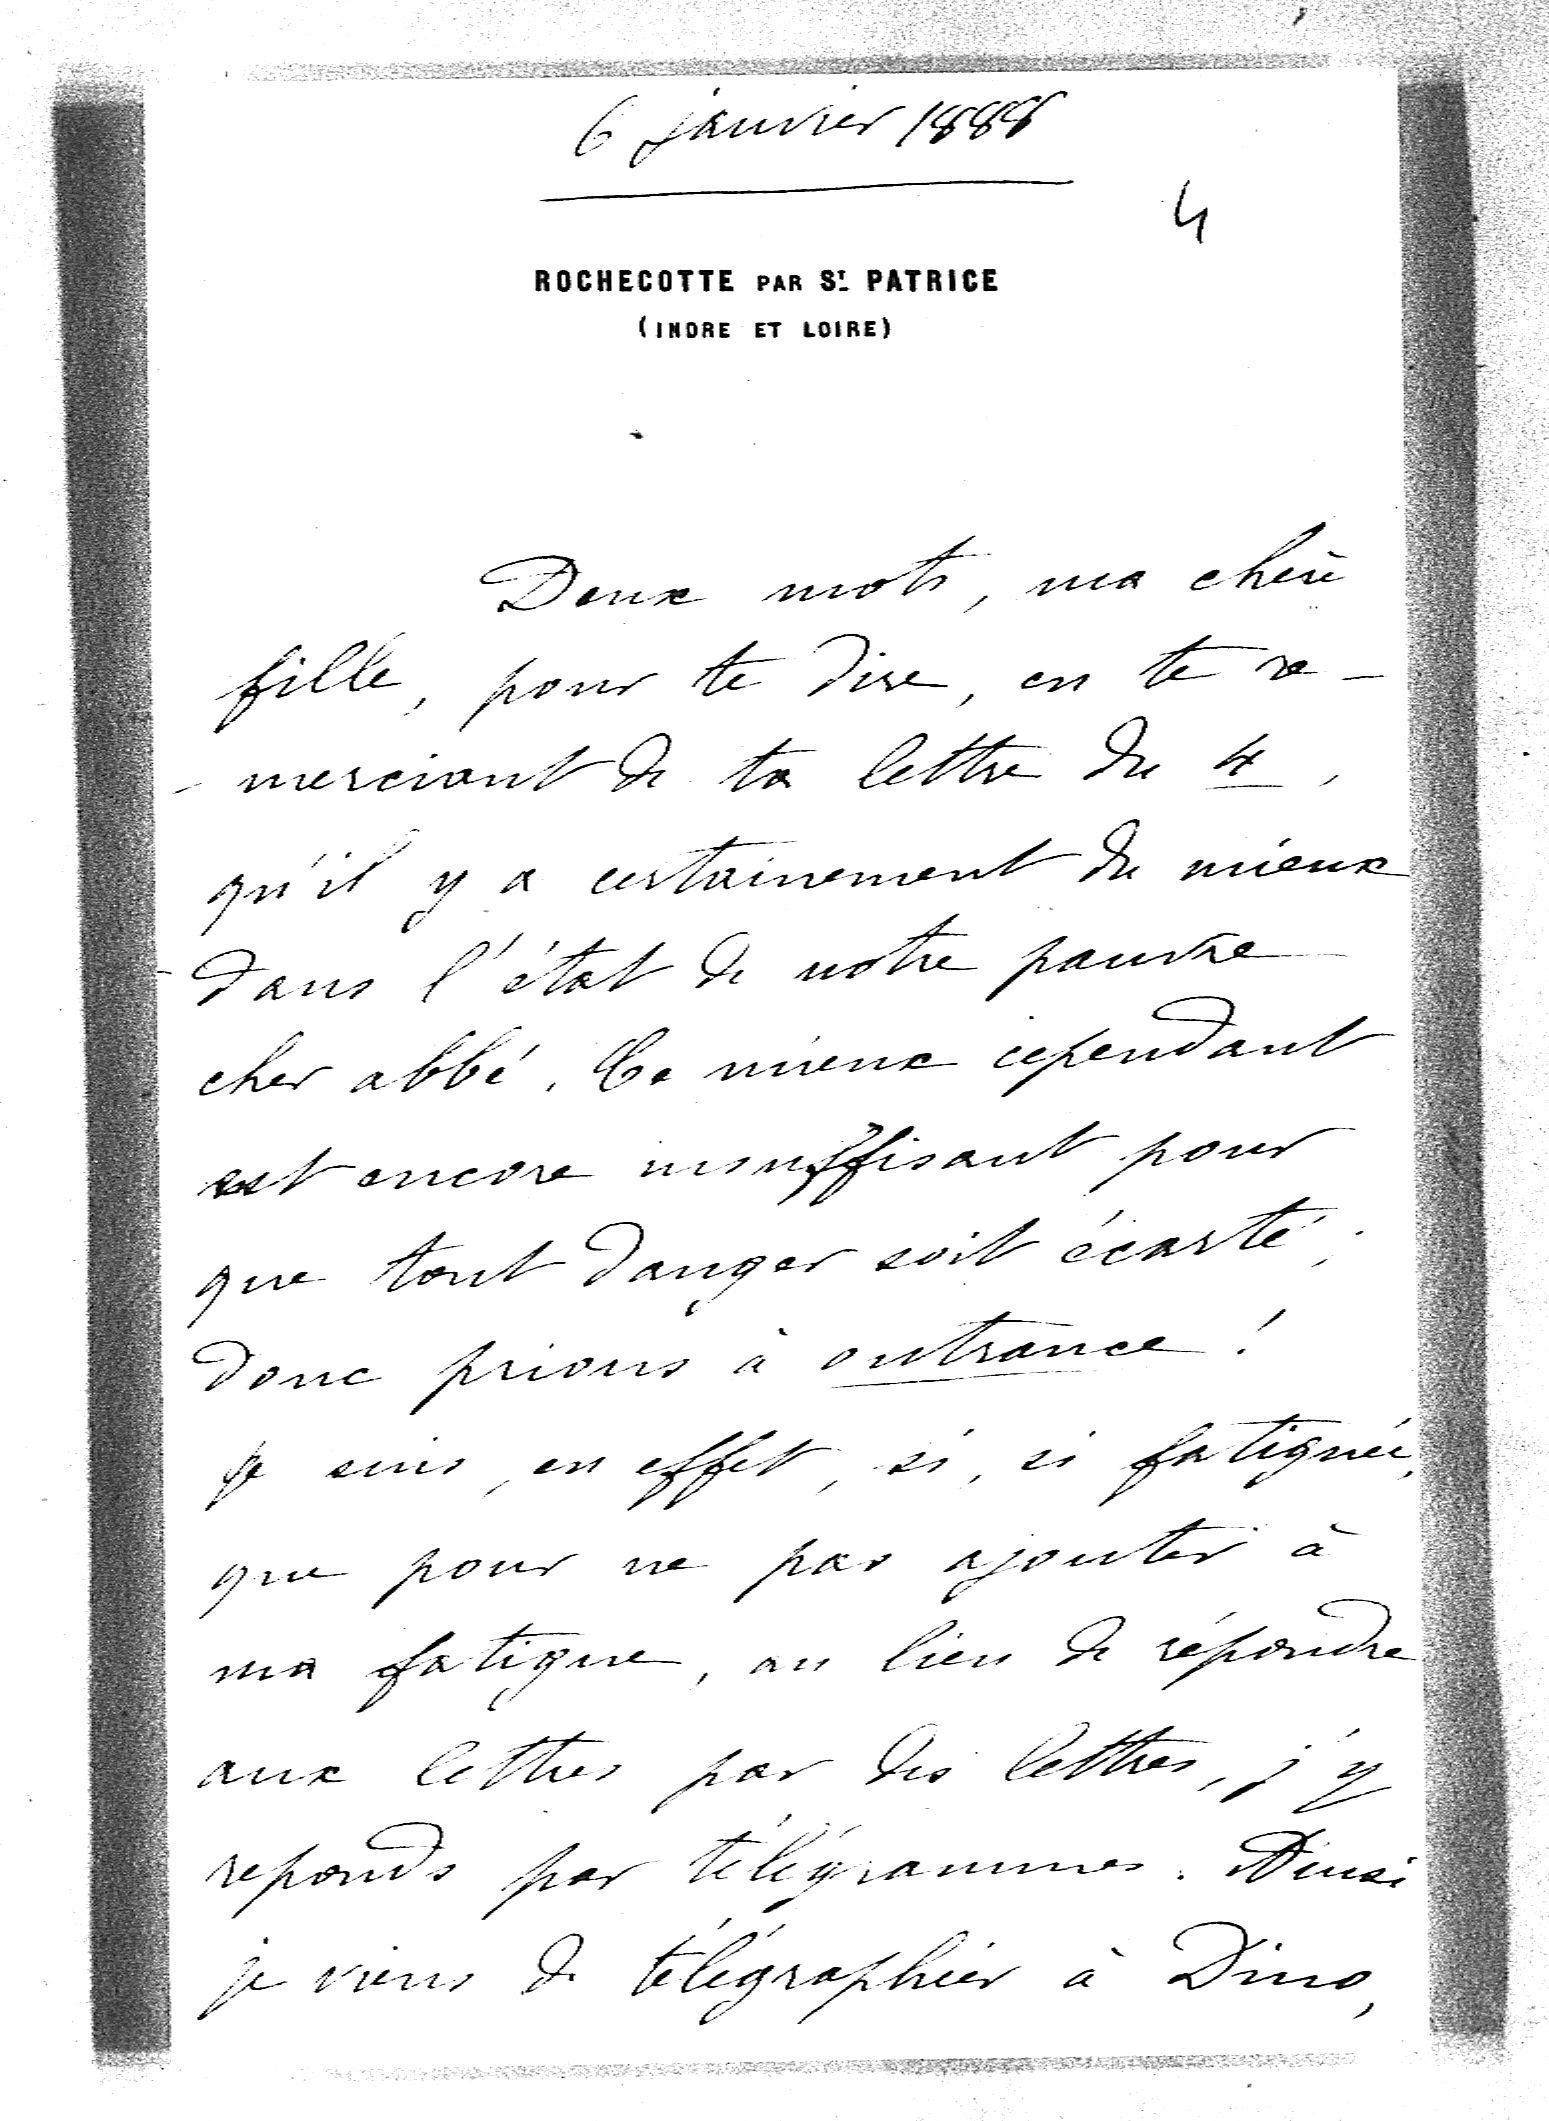 6 janvier 1888
4
ROCHECOTTE PAR ST PATRICE
(INDRE ET LOIRE)
Deux mots, ma chère
fille, pour te dire, en te re-
-merciant de ta lettre du 4,
qu'il y a certainement du mieux
dans l'état de notre pauvre
cher abbé. Ce mieux cependant
est encore insuffisant pour
que tout danger soit écarté;
donc prions à outrance!
Je suis, en effet, si, si fatiguée,
que pour ne pas ajouter à
ma fatigue, au lieu de répondre
aux lettres par des lettres, j'y
reponds par télégrammes. Ainsi
je viens de télégraphier à Dino,